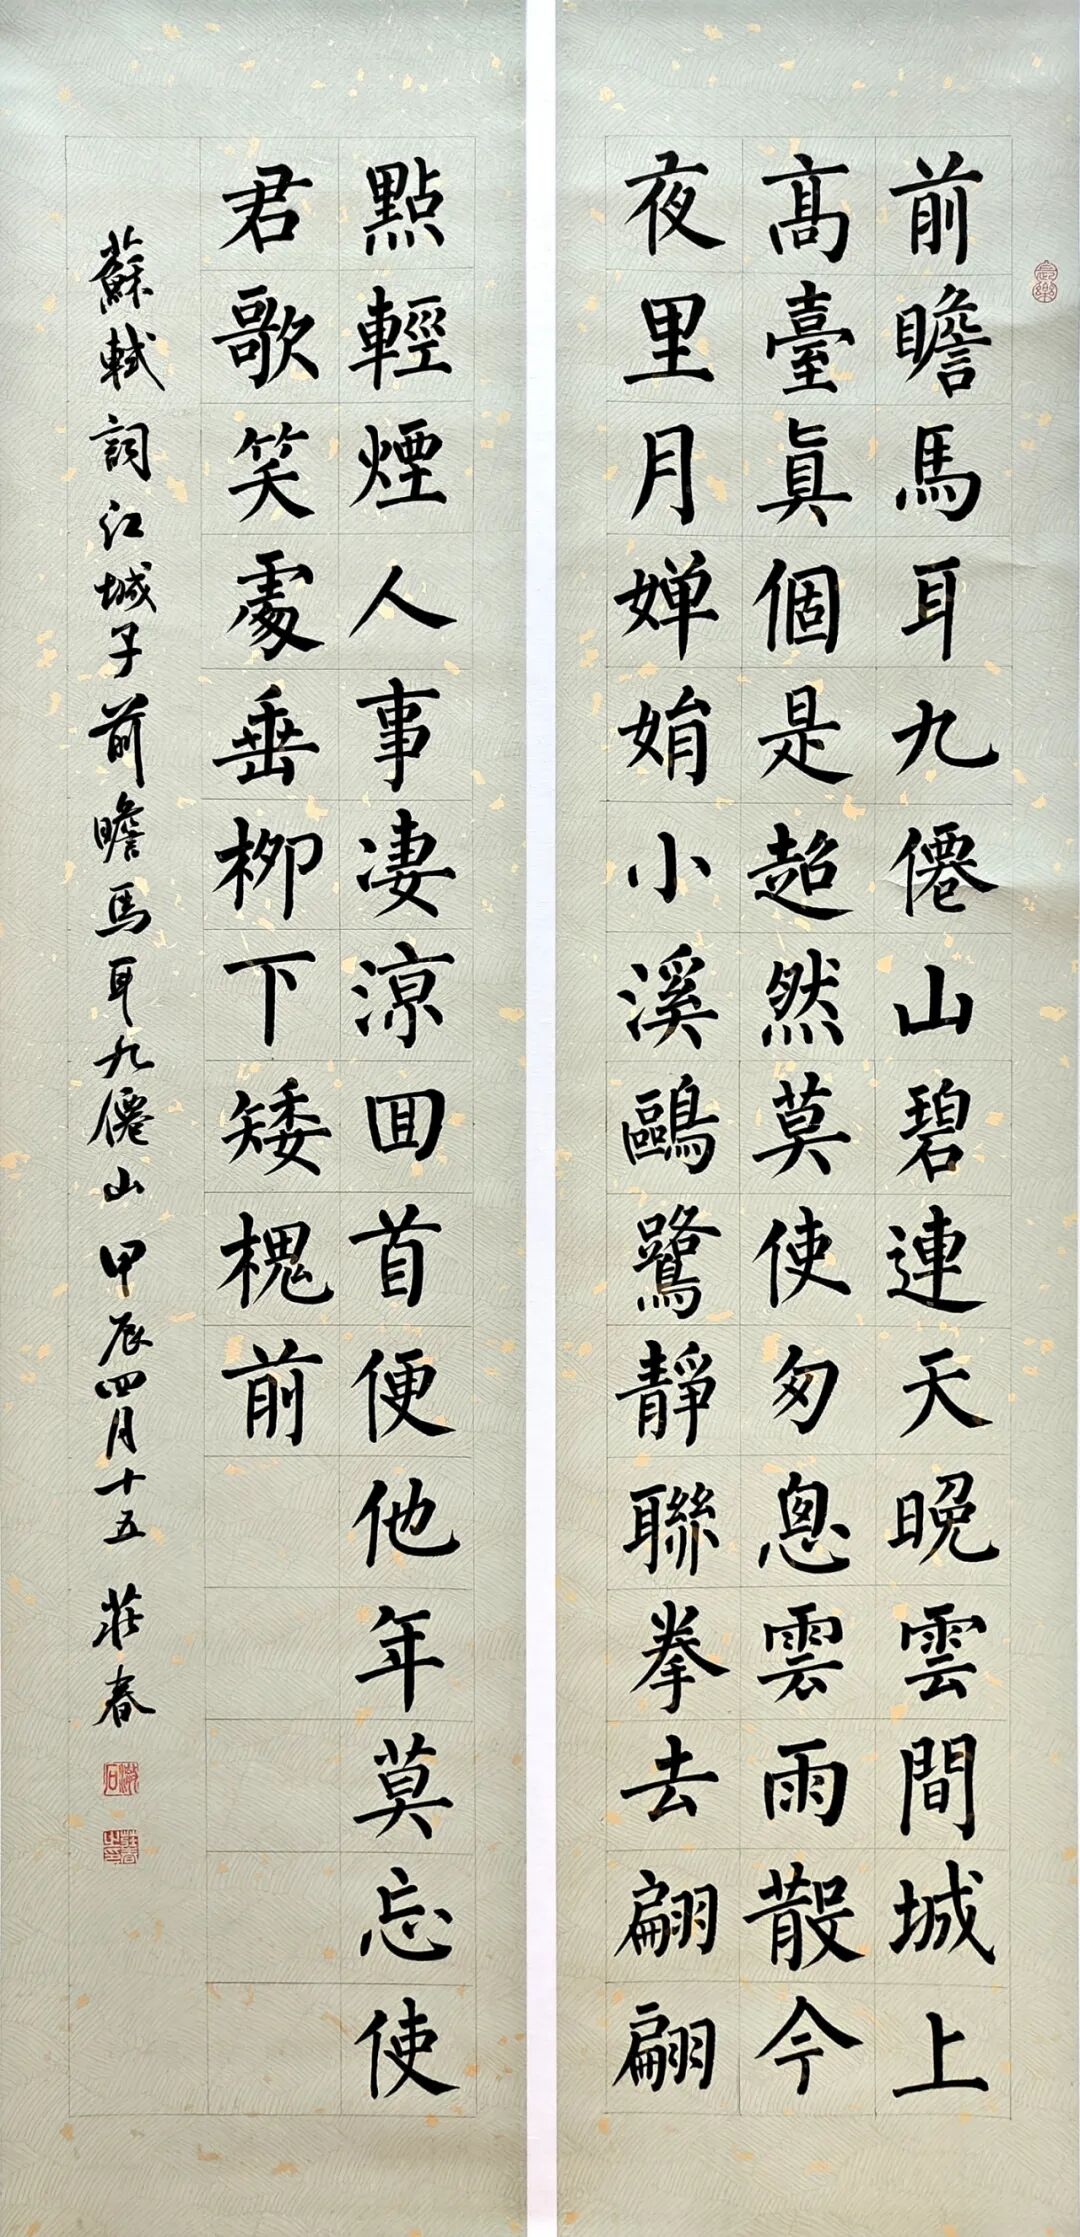 前瞻馬耳九僊山碧連天晚雲間城上
高臺真個是超然莫使匆悤雲雨散今
夜里月嬋娟小溪鷗鷺靜聯拳去翩翩
點輕煙人事凄涼回首便他年莫忘使
君歌笑處垂柳下矮槐前
蘇軾詞江城子前瞻馬耳九僊山甲辰四月十五 莊春